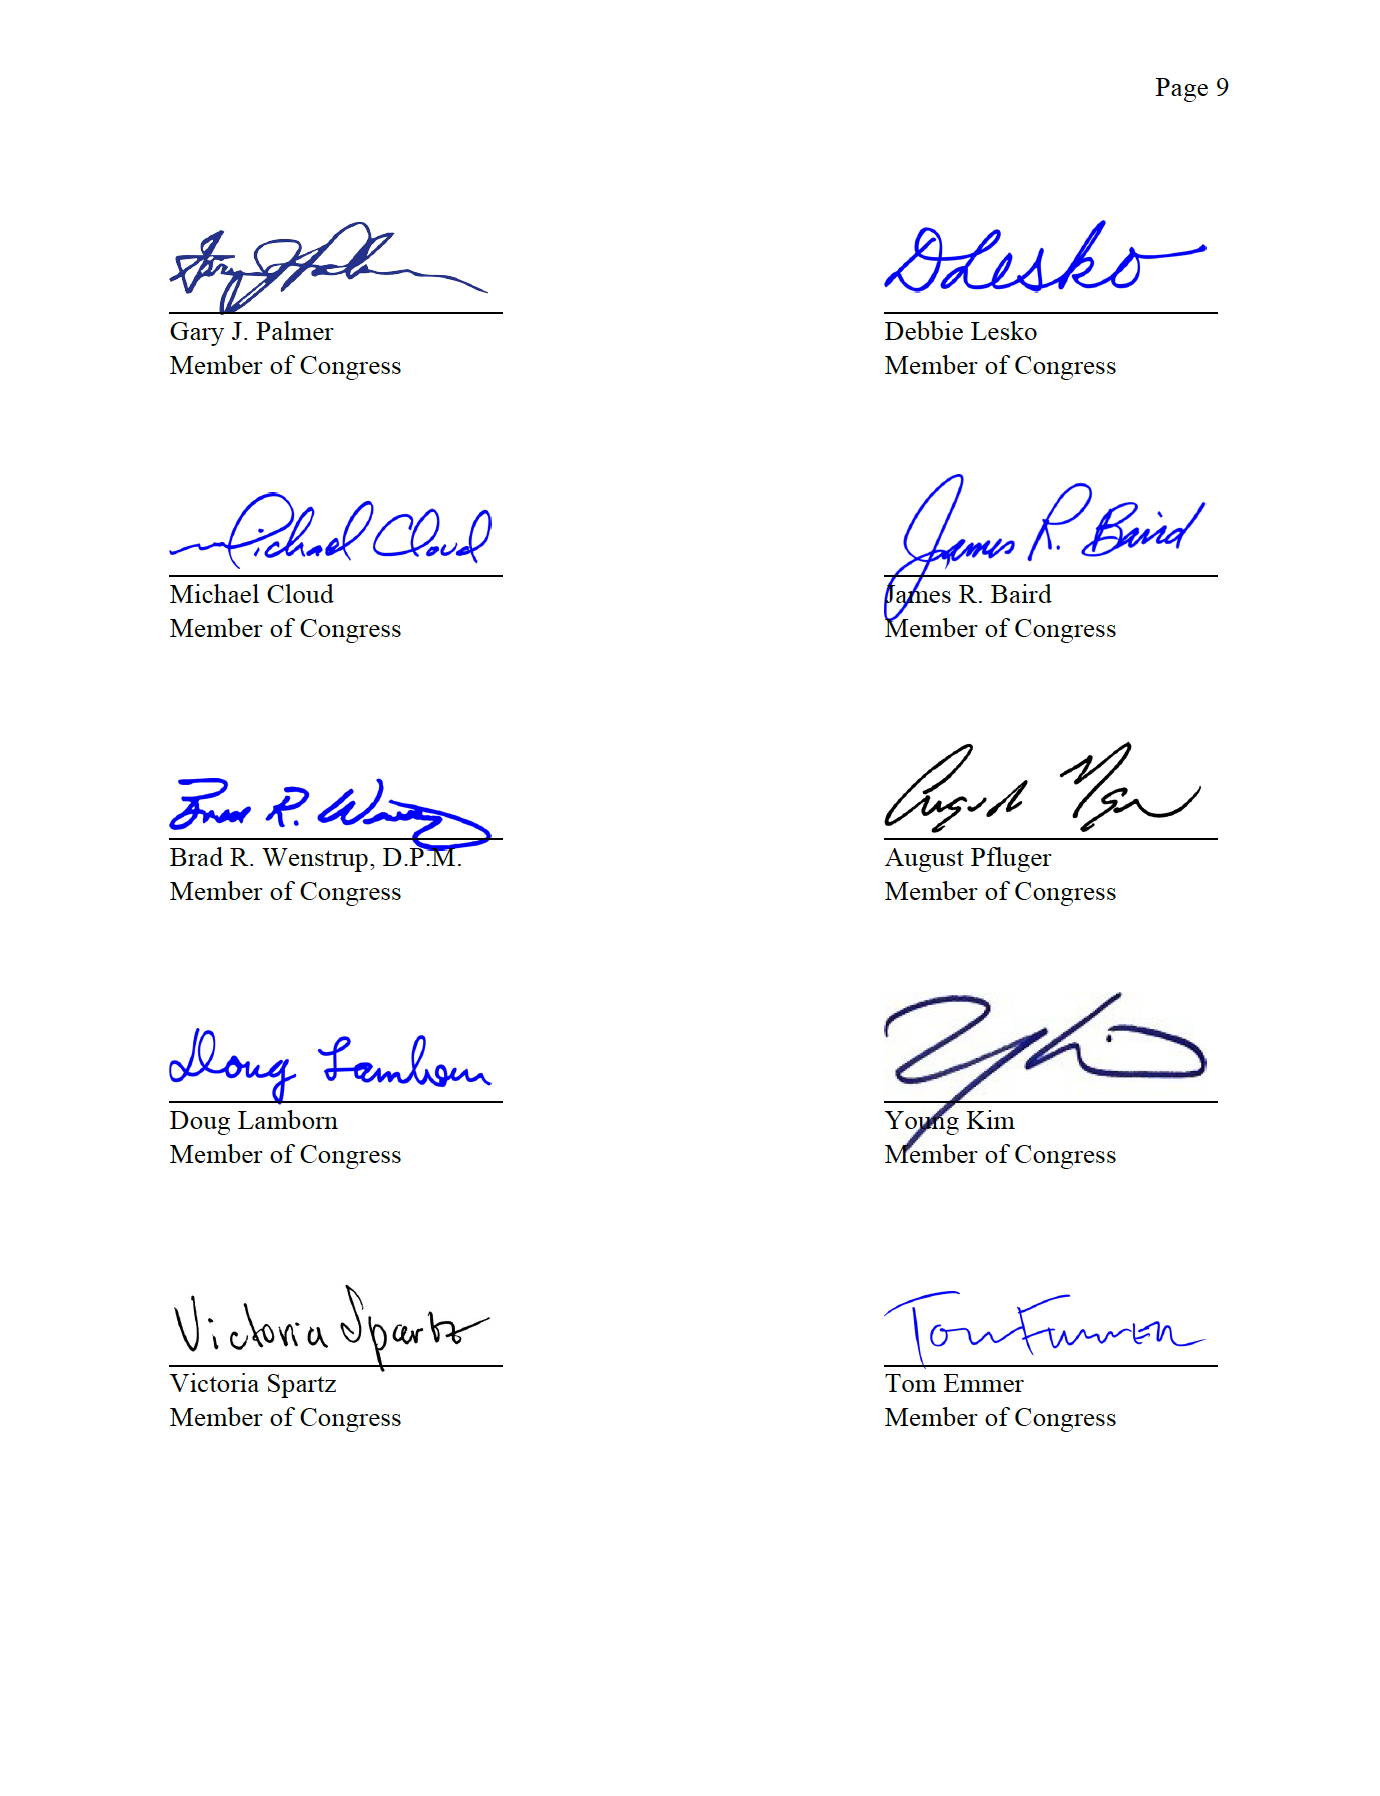 Page 9
Gary J. Palmer
Gary J. Palmer
Member of Congress
DLesko
Debbie Lesko
Member of Congress
Michael Cloud
Michael Cloud
Member of Congress
James R. Baird
James R. Baird
Member of Congress
Brad R. Wenstrup, D.P.M.
Member of Congress
August Pfluger
Member of Congress
Doug Lamborn
Doug Lamborn
Member of Congress
Young Kim
Member of Congress
Victoria Spartz
Victoria Spartz
Member of Congress
Tom Emmer
Tom Emmer
Member of Congress